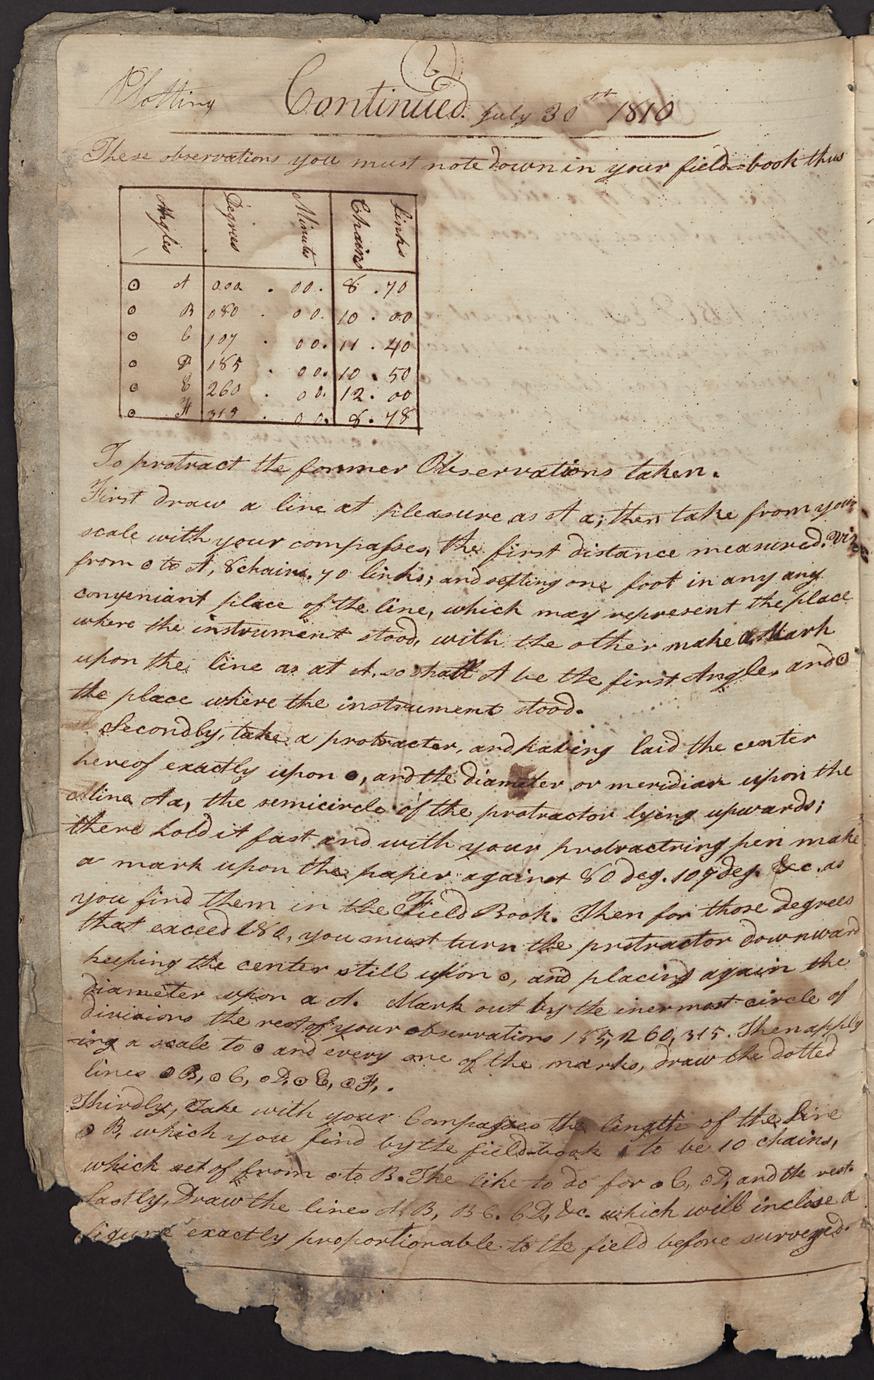 (2)
Plotting Continued. July 30th 1810
These observations you must note down in your field=book thus
Angles Degrees Minuts Chains Links
⊙ A 000 . 00. 8 . 70
⊙ B 080 . 00. 10 . 00
⊙ C 107 . 00. 11 . 40
⊙ D 185 . 00. 10 . 50
⊙ E 260 . 00. 12 . 00
⊙ 315 . 00. 8 . 78
To protract the former Observations taken.
First draw a line at pleasure as A a; then take from your
scale with your compasses, the first distance measured, viz
from ⊙ to A, 8 chains, 70 links; and setting one foot in any any
conveniant place of the line, which may represent the place
where the instrument stood, with the other make a Mark
upon the line as at A. so shall A be the first Angle, and ⊙
the place where the instrument stood.
Secondly take a protracter, and having laid the center
hereof exactly upon ⊙, and the diameter or meridian upon the
line Aa, the semicircle of the protractor lying upwards;
there hold it fast and with your protracting pen make
a mark upon the paper against 80 deg. 107 deg. &c. as
you find them in the Field Book. Then for those degrees
that exceed 180, you must turn the protractor downward
keeping the center still upon ⊙, and placing again the
diameter upon a A. Mark out by the inermost circle of
divisions the rest of your observations 185, 260, 315. Then apply
ing a scale to ⊙ and every one of the marks, draw the dotted
lines ⊙ B, ⊙ C, ⊙ D, ⊙ E, ⊙ F, .
Thirdly, Take with your Compasses the length of the line
⊙ B, which you find by the field-book to be 10 chains,
which set of from ⊙ to B. The like to do for ⊙ C, ⊙ D, and the rest
Lastly, Draw the lines A B, B C. C D, &c. which will inclose a
figure exactly proportionable to the field before surveyed.